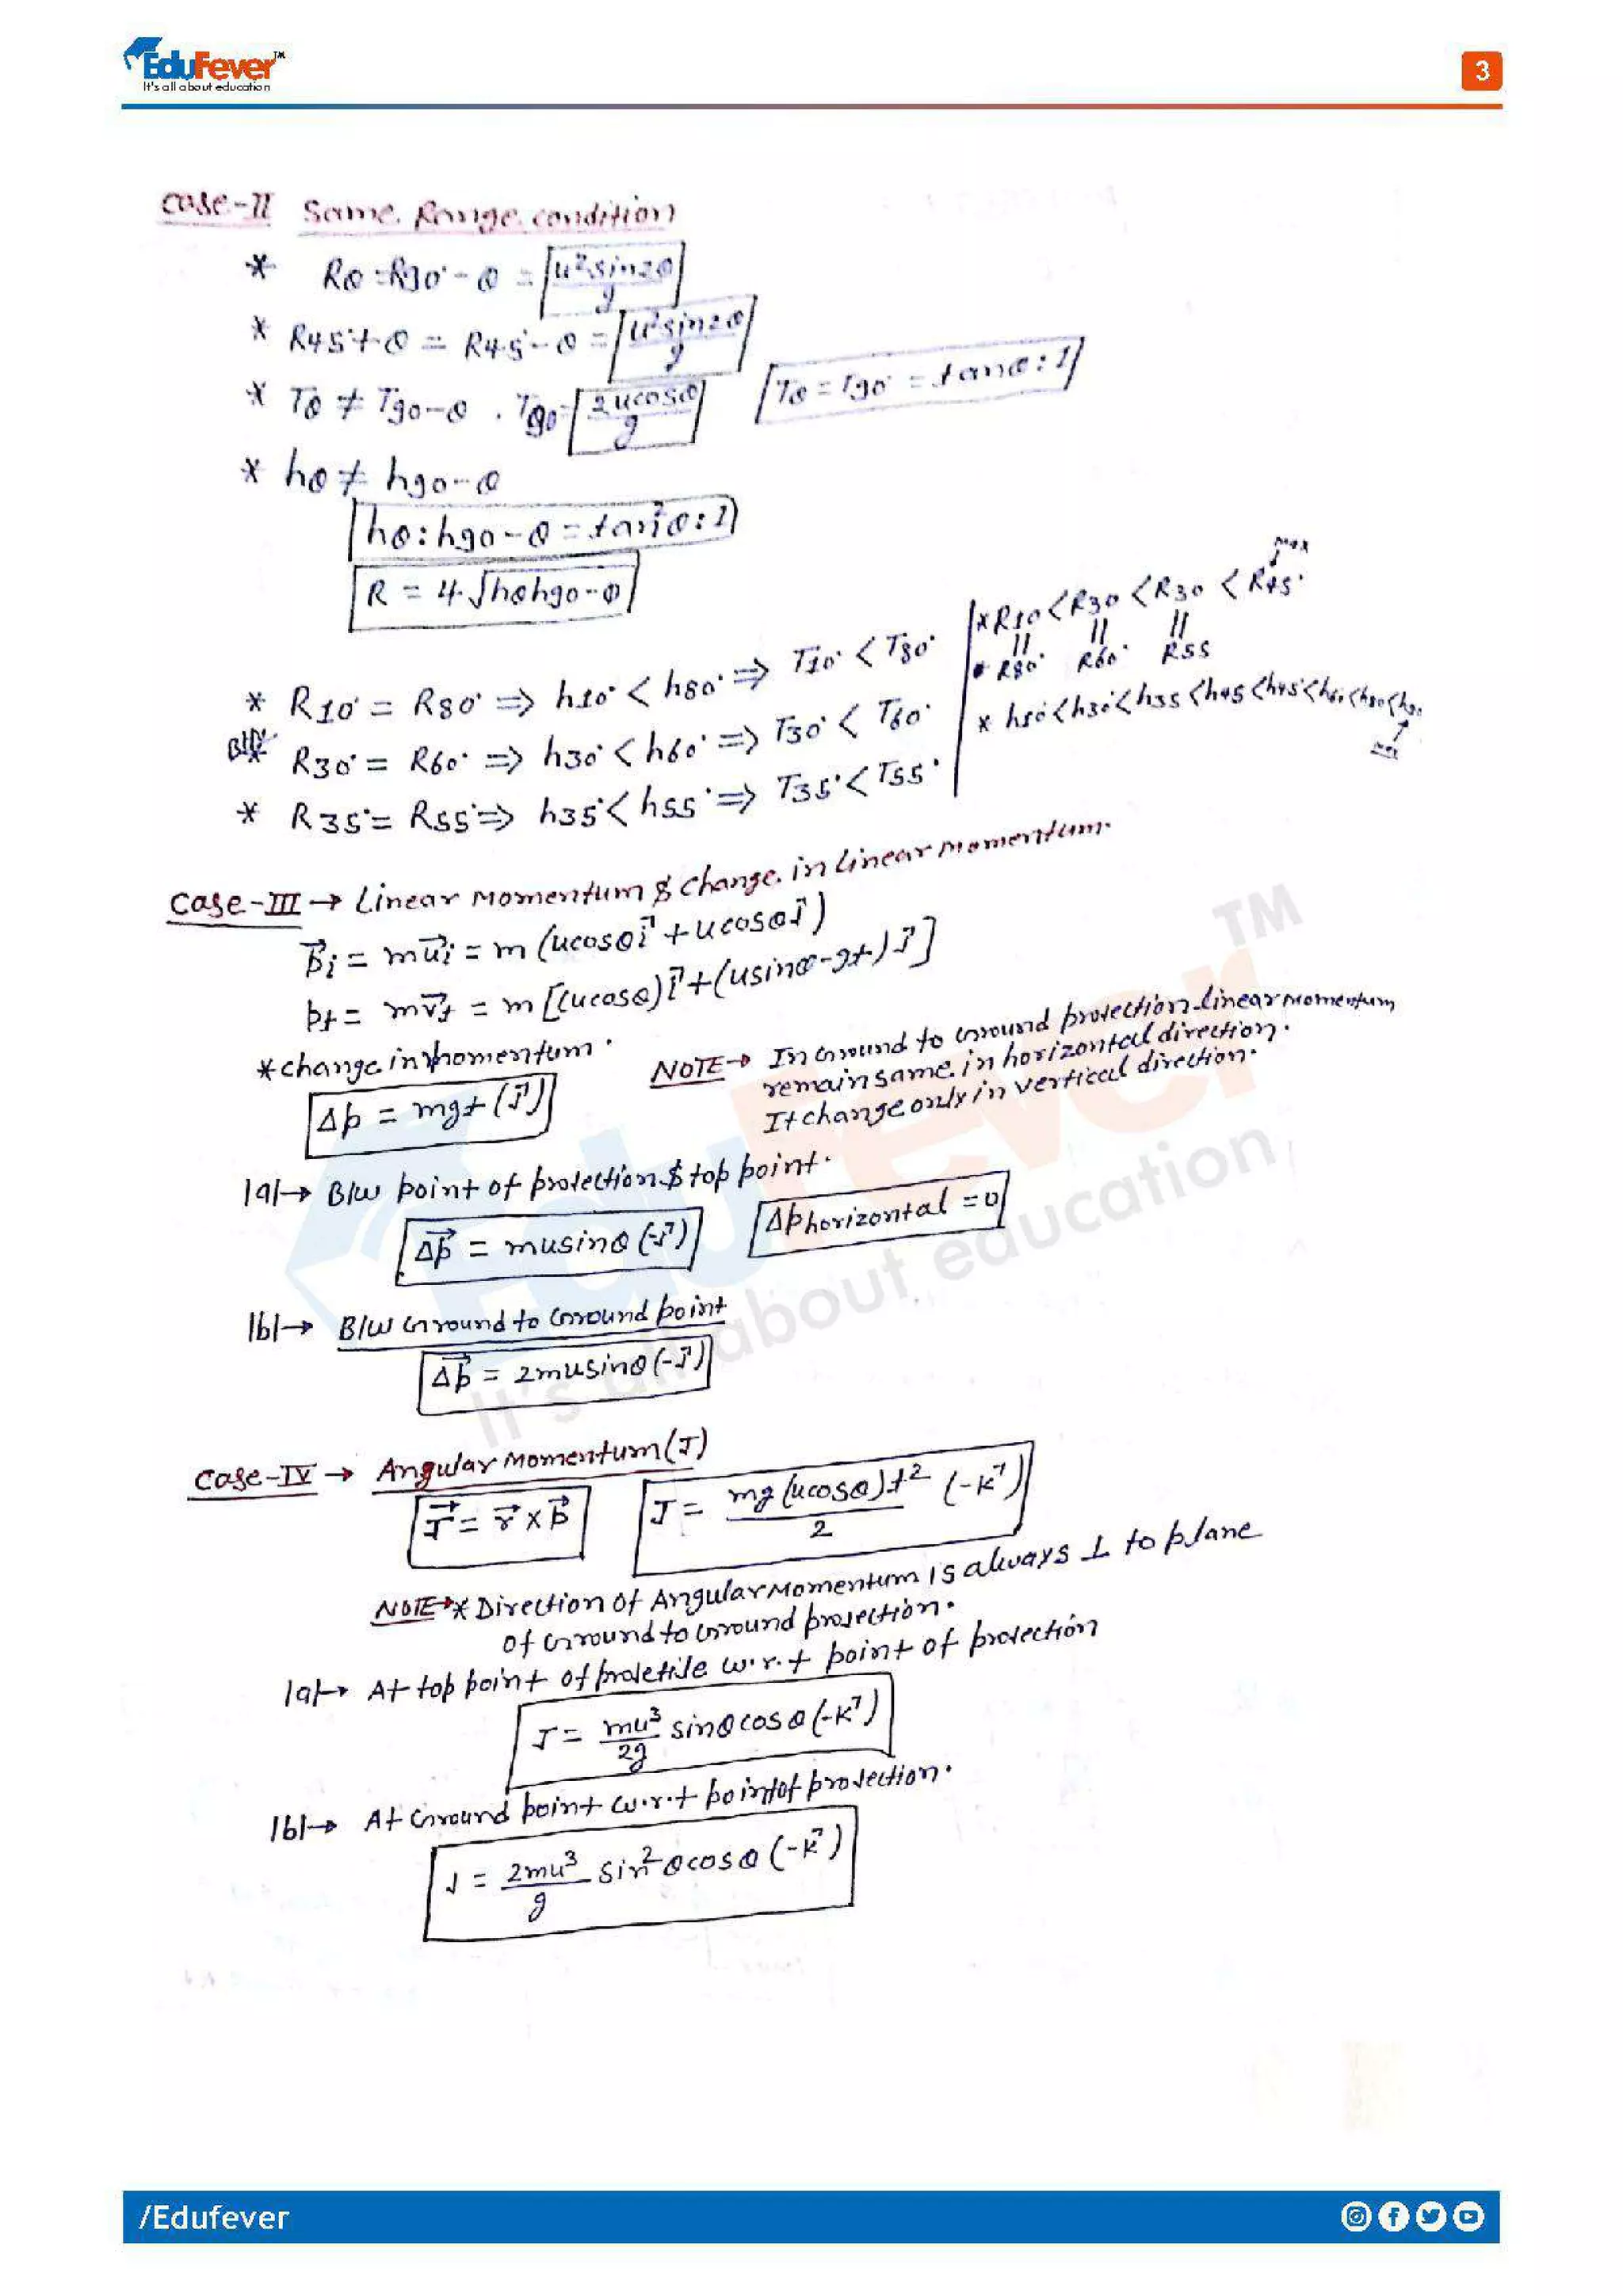 EduFever™
It's all about education
3
Case-II Same Range condition
* Rθ = R90°-θ = u²sin2θ/g
* R45°+θ = R45°-θ = u²sin2θ/g
* Tθ ≠ T90-θ . T90 = 2ucosθ/g Tθ = T90° = tanθ:1
* hθ ≠ h90-θ
hθ:h90-θ = tan²θ:1
R = 4√hθh90-θ
* R10° = R80° ⇒ h10° < h80° ⇒ T10° < T80°
* R30° = R60° ⇒ h30° < h60° ⇒ T30° < T60°
* R35° = R55° ⇒ h35° < h55° ⇒ T35° < T55°
Max
* R10 < R30 < R30 < R45°
|| || ||
R80° R60° R55
* h10° < h30° < h35 < h45 <
Case-III → Linear Momentum & change in linear momentum.
P⃗i = mu⃗i = m (ucosθi⃗ + ucosθj⃗)
pf = mv⃗f = m [(ucosθ)i⃗ + (usinθ-gt)j⃗]
* change in momentum.
Δp = mgt (j⃗)
NOTE→ In Ground to Ground projection linear momentum
remain same in horizontal direction.
It change only in vertical direction.
|a|→ B/W point of projection & top point.
Δp⃗ = musinθ (-j⃗) Δphorizontal = 0
|b|→ B/W Ground to Ground point
Δp⃗ = 2musinθ (-j⃗)
Case-IV → Angular Momentum (J)
J⃗ = r⃗ x p⃗ J = mg(ucosθ)t²/2 (-k⃗)
NOTE→* Direction of Angular Momentum is always ⊥ to plane
of Ground to Ground projection.
|a|→ At top point of projetile w.r.t point of projection
J = mu³/2g sinθcosθ (-k⃗)
|b|→ At Ground point w.r.t point of projection.
J = 2mu³/g sin²θcosθ (-k⃗)
EduFever™
It's all about education
/Edufever